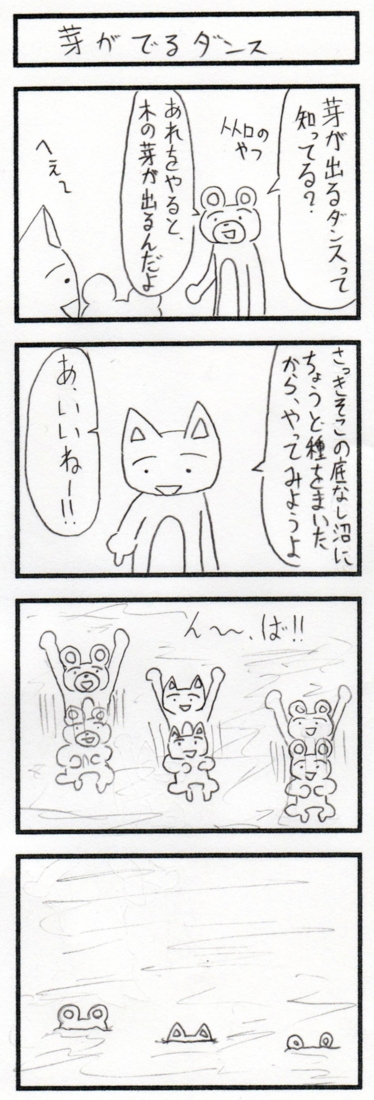 芽がでるダンス
芽が出るダンスって
知ってる？
トトロの
やつ
あれをやると、
木の芽が出るんだよ
へぇ～
さっきそこの底なし沼に
ちょうど種をまいた
から、やってみようよ
あ、いいねー!!
ん〜〜、ば!!